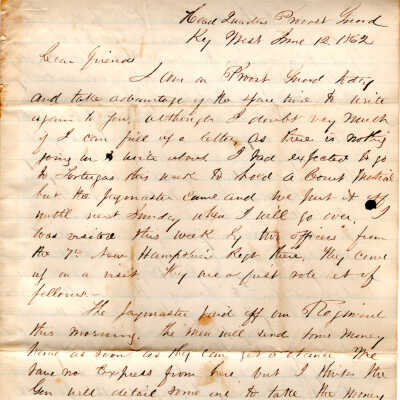 Head Quarters Provost Guard
Key West June 12 1862
Dear Friends
I am on Provst Guard today
and take advantage of the spare time to write
again to you, although I doubt very much
if I can fill up a letter, as there is nothing
going on to write about. I had expected to go
to Tortugas this week to hold a Court Martial
but the paymaster came and we put it off
until next Sunday when I will go over. I
was visited this week by the officers from
the 7th New Hampshire Regt there, they come
up on a visit. They are a first rate set of
fellows.—
The paymaster paid off our Regiment
this morning. The men will send some money
home as soon as they can get a chance. We
have no Express from here but I think the
Gen will detail some one to take the money